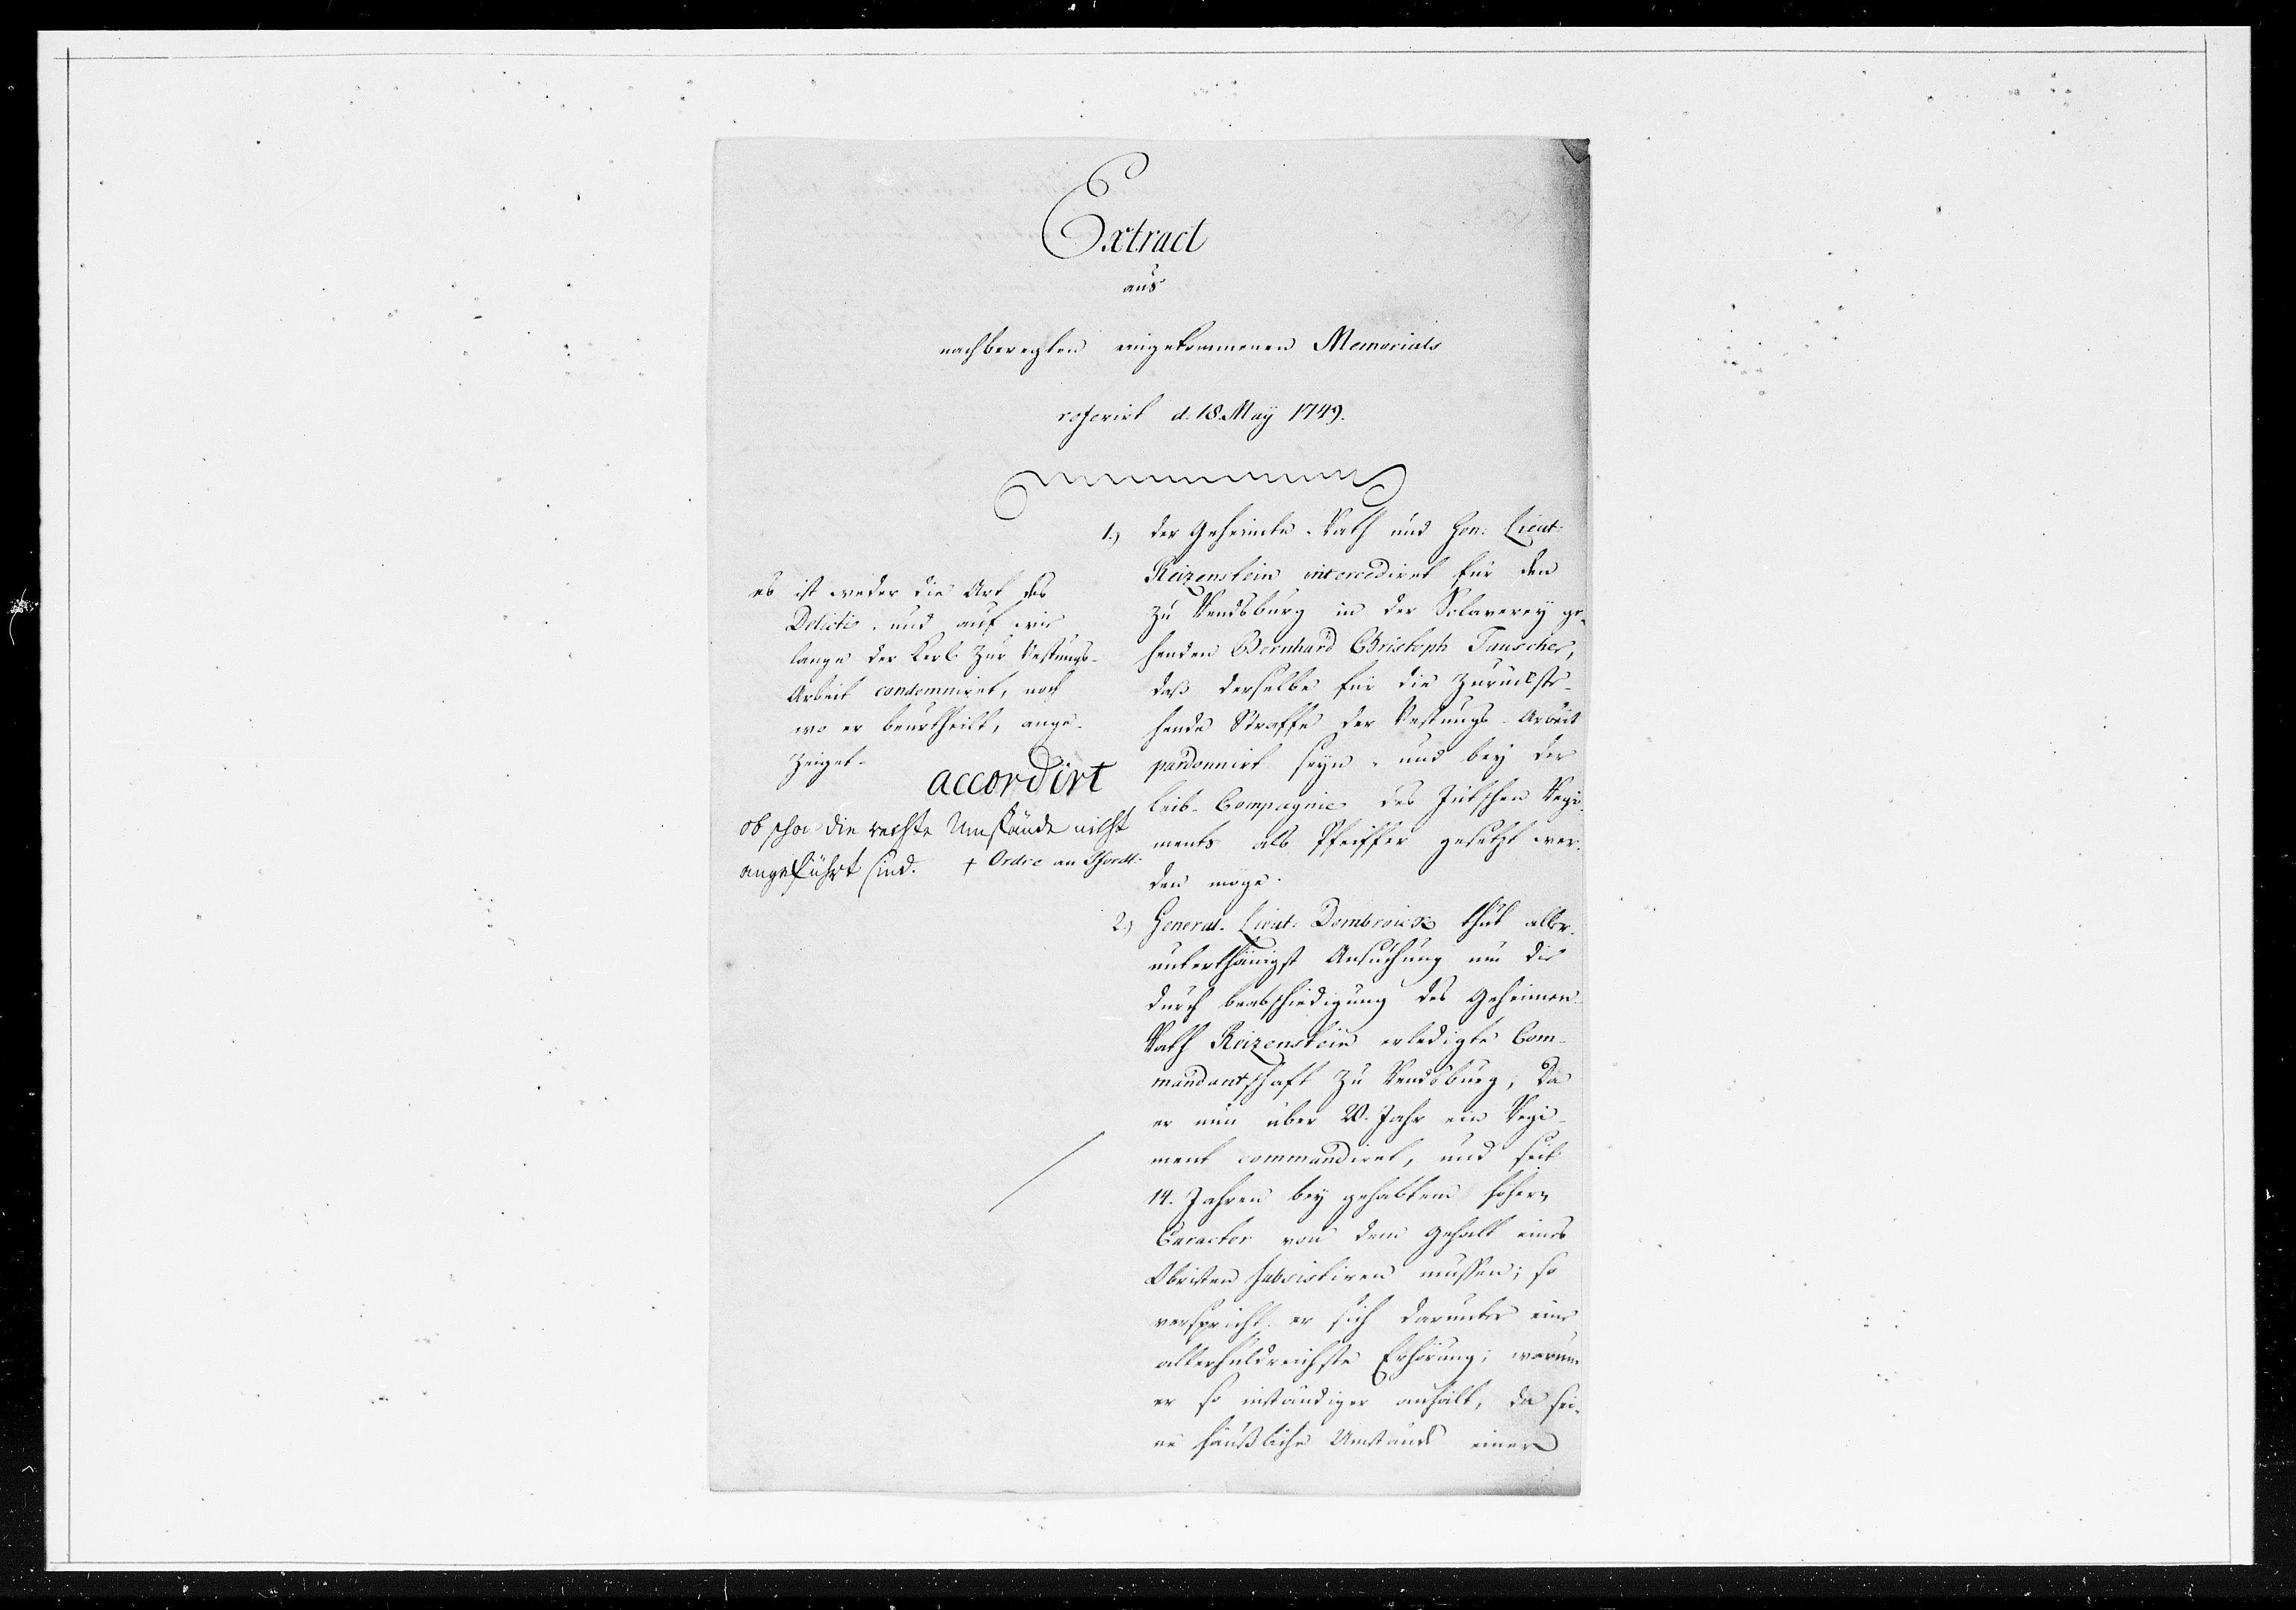 Extract
aus
nachberegten eingekommenen Memorials
referirt d. 18. May 1749.
1.) der Geheimte-Rath und Gen: Lieut:
Reizenstein intercediret für den
zu Rendsburg in der Sclaverey ge-
henden Bernhard Christoph Tauscher,
daß derselbe für die zurückste-
hende Straffe der Vestungs-Arbeit
pardonnirt seyn, und bey der
Leib-Compagnie des Jütschen Regi-
ments als Pfeiffer gesetzt wer-
den möge.
es ist weder die Art des
Delictis, und auf wie
lange der Kerl zur Vestungs-
Arbeit condemniret, noch
wo er beurtheilt, ange-
zeiget.
accordirt
ob schon die rechte Umstände nicht
angeführt sind.
+ Ordre an
2.) General-Lieut: Dombroick thut aller-
unterthänigst Ansuchung um die
durch beabschiedigung des Geheimen-
Rath Reizenstein erledigte Com-
mandantschaft zu Rendsburg; da
er nun über 20. Jahr ein Regi-
ment commandiret, und seit
14. Jahren bey gehabtem höhern
Caracter von dem Gehalt eines
Obristen subsistiren mussen; so
verspricht er sich darunter eine
allerhuldreichste Erhörung; warum
er so inständiger anhält, da sei-
ne häußliche Umstände einen